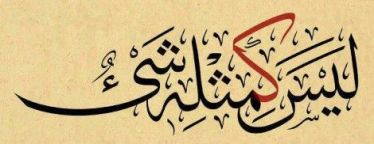 لَيسَ كَمِثلِهِ شَىءُ